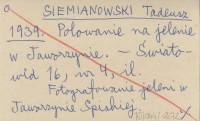 SIEMIANOWSKI Tadeusz
1939. Polowanie na jelenie
w Jaworzynie. – Świato-
wid 16, nr 4, il.
Fotografowanie jeleni w
Jaworzynie Spiskiej.